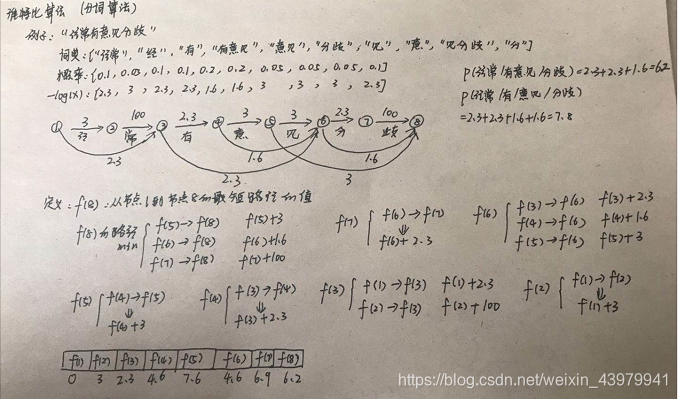 维特比算法 (分词算法)
例子："经常有意见分歧"
词典：["经常", "经", "有", "有意见", "意见", "分歧", "见", "意", "见分歧", "分"]
概率：[0.1, 0.05, 0.1, 0.1, 0.2, 0.2, 0.05, 0.05, 0.05, 0.1]
-log(x)：[2.3, 3, 2.3, 2.3, 1.6, 1.6, 3, 3, 3, 2.3]
P(经常/有意见/分歧)=2.3+2.3+1.6=6.2
P(经常/有/意见/分歧)
=2.3+2.3+1.6+1.6=7.8
3 100 2.3 3 3 2.3 100
① ② ③ ④ ⑤ ⑥ ⑦ ⑧
经 常 有 意 见 分 歧
2.3 1.6 1.6
2.3 3
定义：f(8)：从节点1到节点8的最短路径的值
f(8)的路径 min
f(5)→f(8) f(5)+3
f(6)→f(8) f(6)+1.6
f(7)→f(8) f(7)+100
f(7) f(6)→f(7)
⇓
f(6)+2.3
f(6) f(3)→f(6) f(3)+2.3
f(4)→f(6) f(4)+1.6
f(5)→f(6) f(5)+3
f(5) f(4)→f(5)
⇓
f(4)+3
f(4) f(3)→f(4)
⇓
f(3)+2.3
f(3) f(1)→f(3) f(1)+2.3
f(2)→f(3) f(2)+100
f(2) f(1)→f(2)
⇓
f(1)+3
f(1) f(2) f(3) f(4) f(5) f(6) f(7) f(8)
0 3 2.3 4.6 7.6 4.6 6.9 6.2
https://blog.csdn.net/weixin_43979941